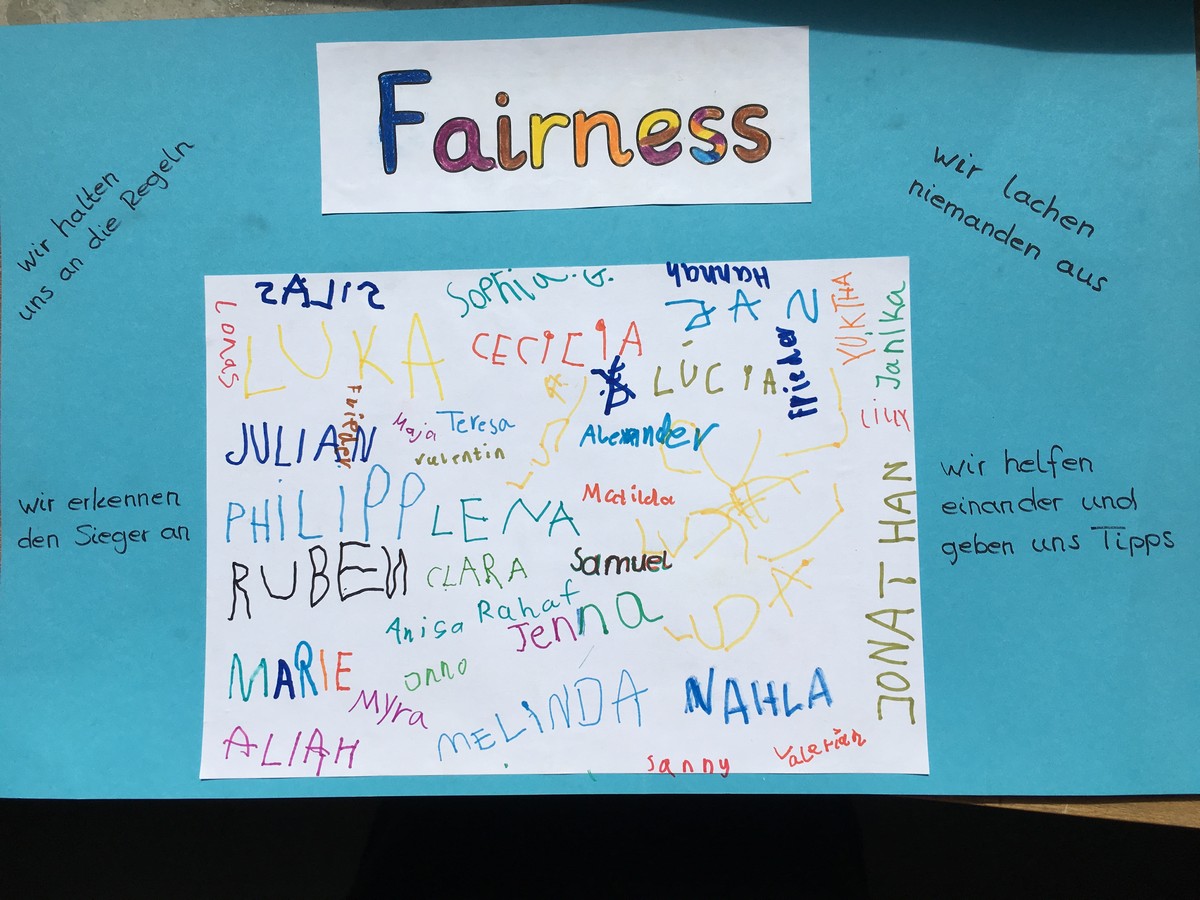 Fairness
wir halten
uns an die Regeln
wir lachen
niemanden aus
wir erkennen
den Sieger an
wir helfen
einander und
geben uns Tipps
SILAS
Sophia. G.
Hannah
Lonas
LUKA
CECILIA
JAN
Frieder
YUKTHA
Janika
LÚCIA
Frieder
Lilly
JULIAN
Maja
Teresa
Valentin
Alexander
PHILIPP
LENA
Matilda
JONATHAN
RUBEN
CLARA
Samuel
Anisa
Rahaf
Jenna
LUDA
MARIE
onno
Myra
MELINDA
NAHLA
ALIAH
sanny
Valerian